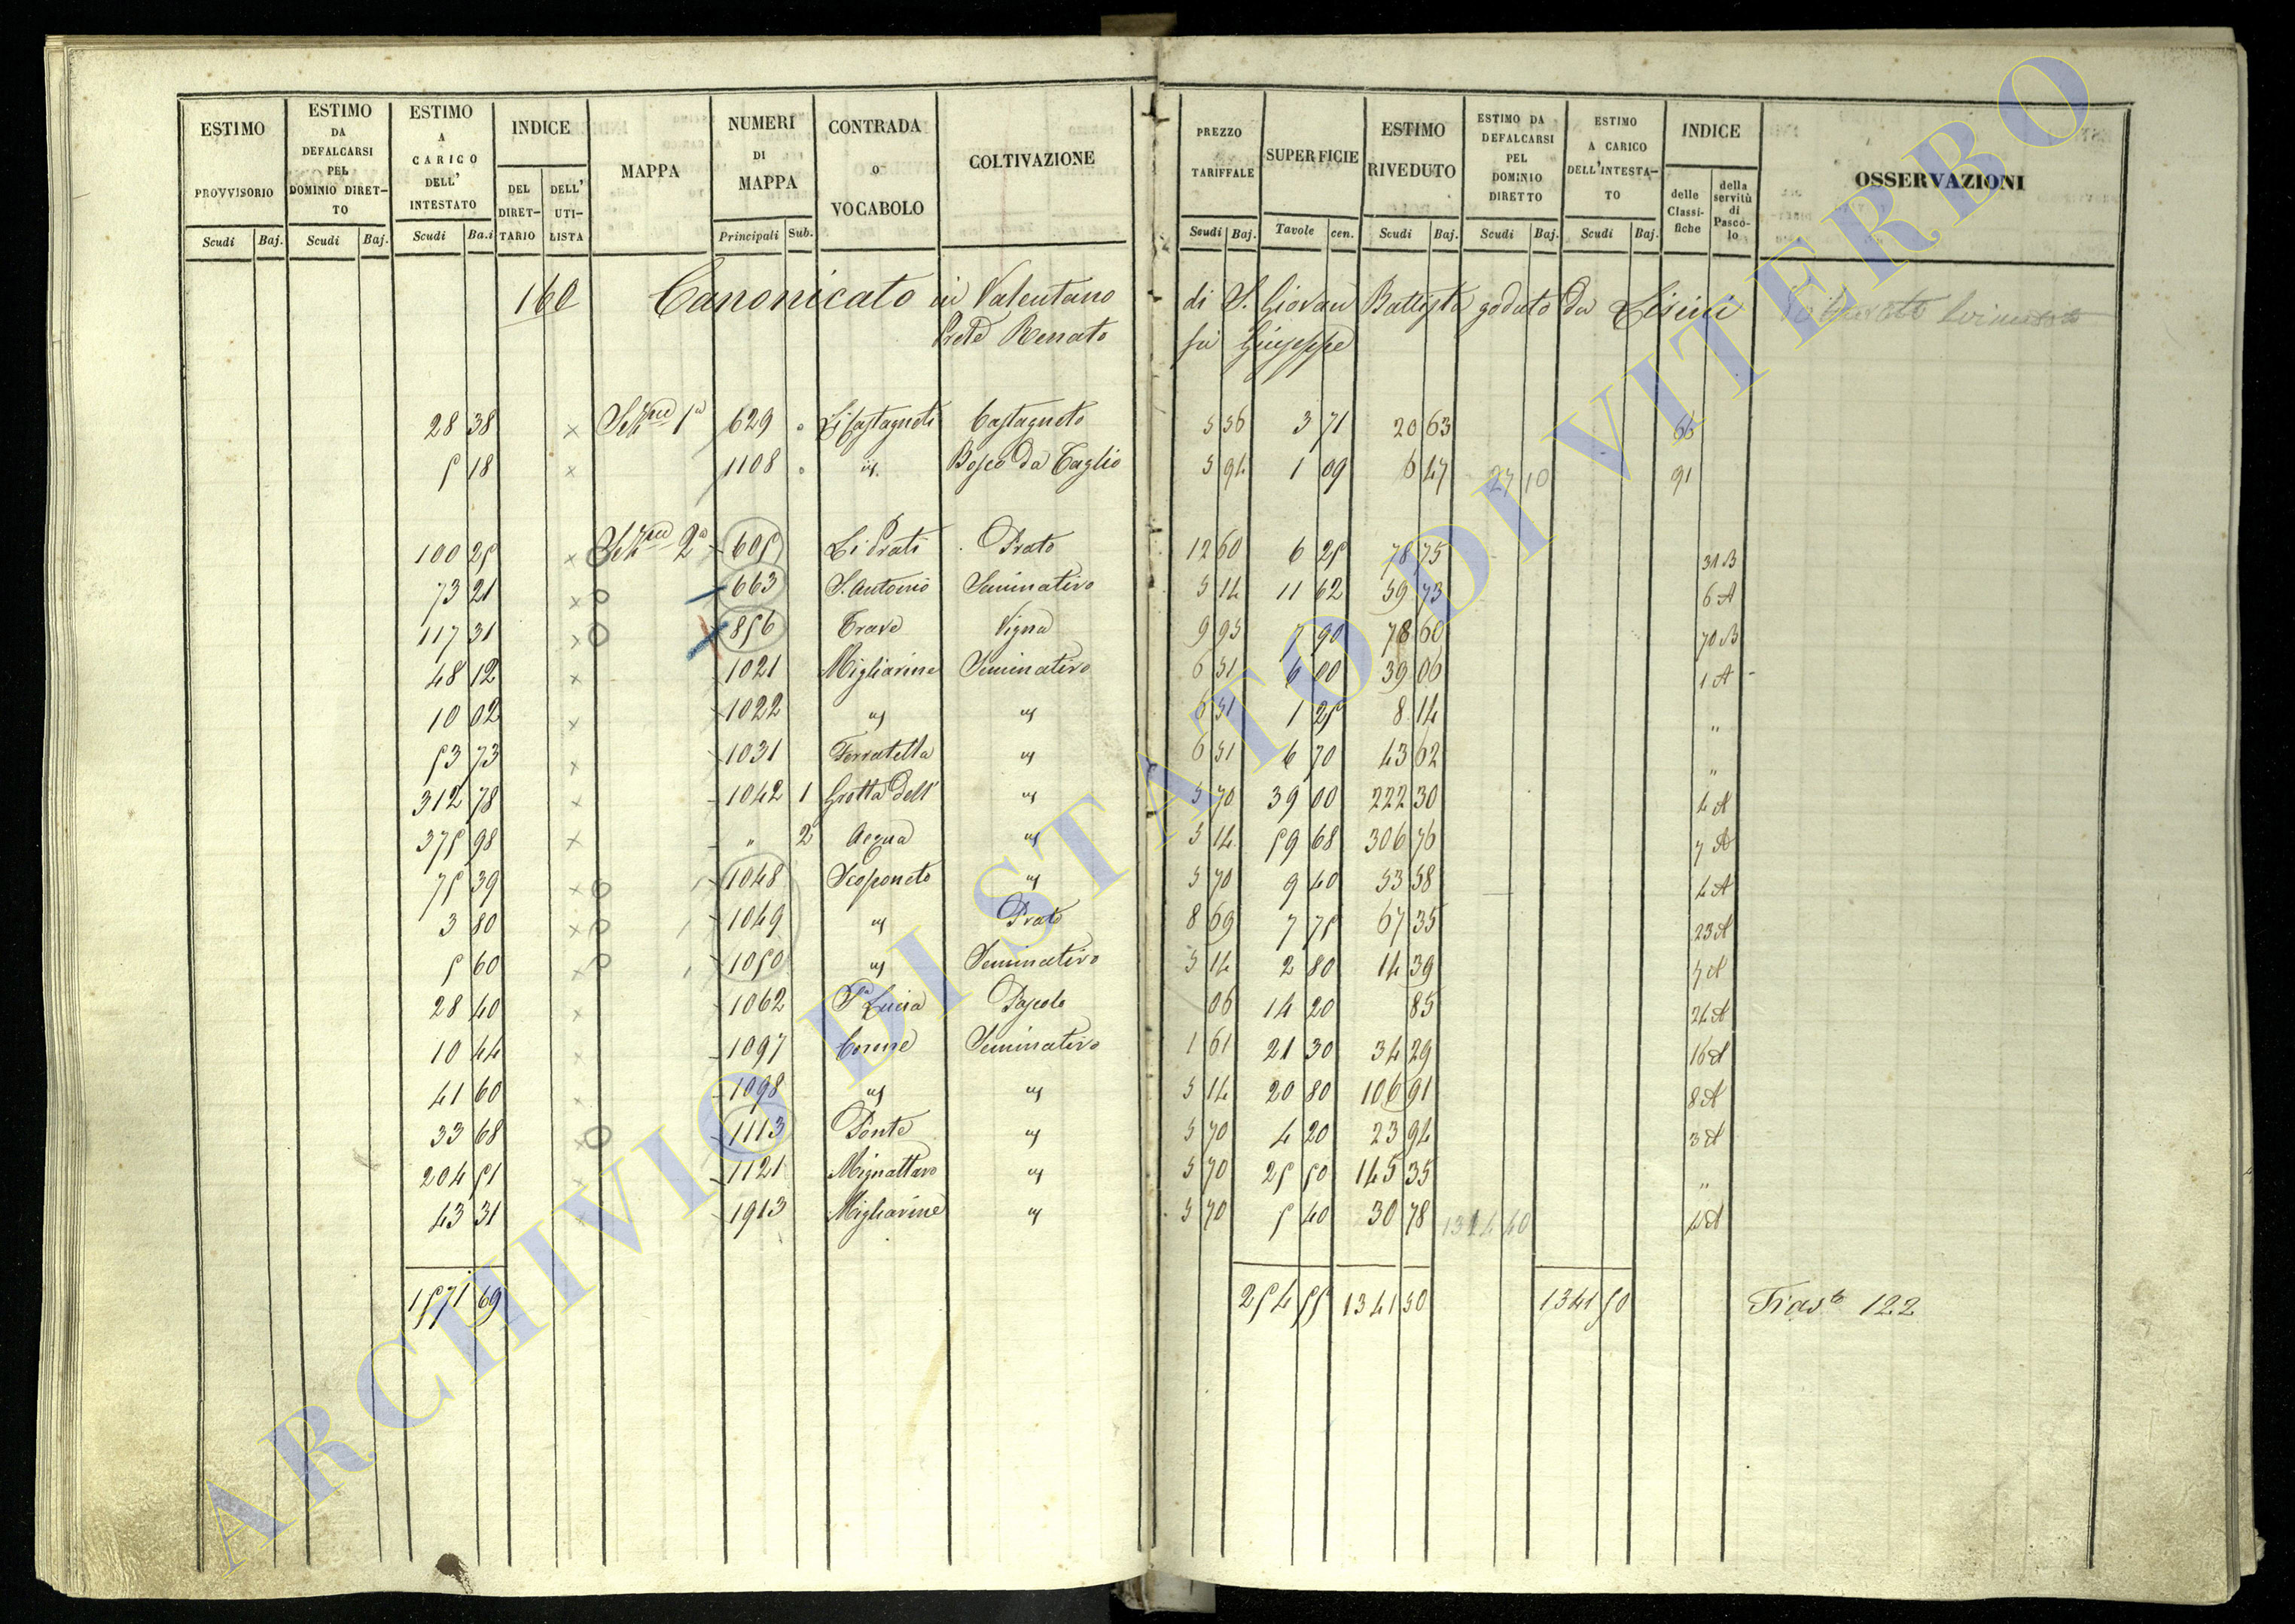 ESTIMO PROVVISORIO Scudi Baj.
ESTIMO DA DEFALCARSI PEL DOMINIO DIRET-TO Scudi Baj.
ESTIMO A CARICO DELL' INTESTATO Scudi Ba.i
INDICE DEL DIRET-TARIO DELL' UTI-LISTA
MAPPA
NUMERI DI MAPPA Principali Sub.
CONTRADA O VOCABOLO
COLTIVAZIONE
PREZZO TARIFFALE Scudi Baj.
SUPERFICIE Tavole cen.
ESTIMO RIVEDUTO Scudi Baj.
ESTIMO DA DEFALCARSI PEL DOMINIO DIRETTO Scudi Baj.
ESTIMO A CARICO DELL'INTESTA-TO Scudi Baj.
INDICE delle Classi-fiche della servitù di Pasco-lo
OSSERVAZIONI
160 Canonicato in Valentano di S. Giovan Battista goduto da Lisini
Prete Renato fu Giuseppe
28 38 × Sezne 1a 629 Li Castagneti Castagneto 5 56 3 71 20 63 66
5 18 × 1108 id. Bosco da Taglio 5 94 1 09 6 47 27 10 91
100 25 × Sezne 2a 605 Li Prati Prato 12 60 6 25 78 75 31 B
73 21 × 663 S. Antonio Seminativo 5 14 11 62 59 73 6 A
117 31 × 856 Trave Vigna 9 95 7 90 78 60 70 B
48 12 × 1021 Migliarine Seminativo 6 51 6 00 39 06 1 A
10 02 × 1022 id id 6 51 1 25 8 14 "
53 73 × 1031 Ferratella id 6 51 6 70 43 62 "
312 78 × 1042 1 Grotta dell' id 5 70 39 00 222 30 4 A
375 98 × " 2 Acqua id 5 14 59 68 306 76 7 A
75 39 × 1048 Scoponeto id 5 70 9 40 53 58 4 A
3 80 × 1049 id Prato 8 69 7 75 67 35 23 A
5 60 × 1050 id Seminativo 5 14 2 80 14 39 7 A
28 40 × 1062 Sa Lucia Pascolo 06 14 20 85 24 A
10 44 × 1097 Corme Seminativo 1 61 21 30 34 29 16 A
41 60 × 1098 id id 5 14 20 80 106 91 8 A
33 68 × 1113 Ponte id 5 70 4 20 23 94 3 A
204 51 × 1121 Mignattaro id 5 70 25 50 145 35 "
43 31 × 1913 Migliarine id 5 70 5 40 30 78 1314 40 4 A
1571 69 254 55 1341 50 1341 50 Trasto 122
ARCHIVIO DI STATO DI VITERBO